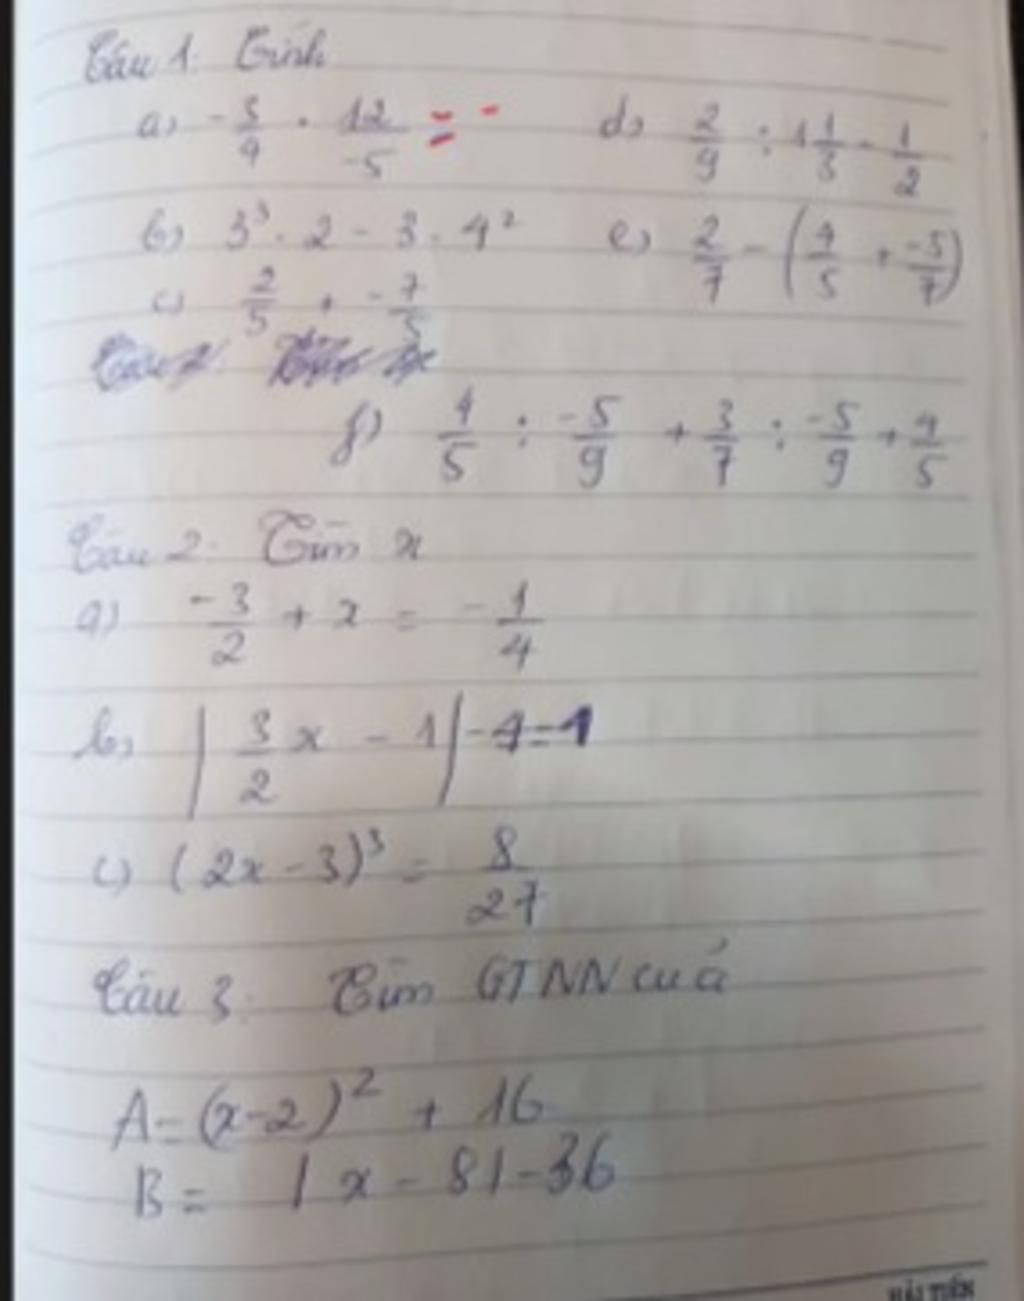 Câu 1. Tính
a) -5/9 . 12/-5 = -
d) 2/9 : 1 1/3 - 1/2
b) 3³ . 2 - 3 . 4²
e) 2/7 - (4/5 + -5/7)
c) 2/5 + -7/5
f) 4/5 : -5/9 + 3/7 : -5/9 + 4/5
Câu 2. Tìm x
a) -3/2 + x = -1/4
b) |3/2 x - 1| - 4 = 1
c) (2x - 3)³ = 8/27
Câu 3. Tìm GTNN của
A = (x-2)² + 16
B = |x - 8| - 36
HẢI TIẾN